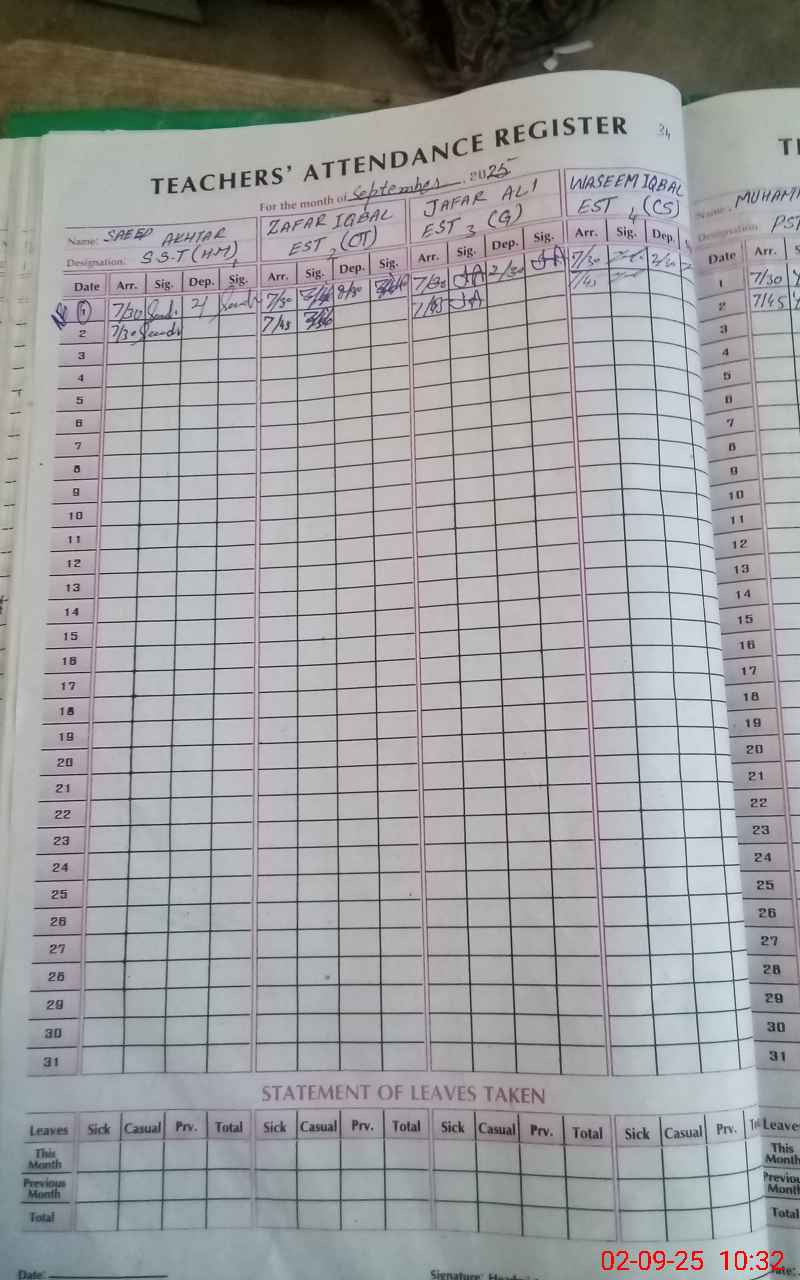 TEACHERS' ATTENDANCE REGISTER 34
For the month of September, 2025
Name: SAEED AKHTAR
Designation. S.S.T (HM) 1
ZAFAR IQBAL
EST 2 (OT)
JAFAR ALI
EST 3 (G)
WASEEM IQBAL
EST 4 (CS)
Date Arr. Sig. Dep. Sig. Arr. Sig. Dep. Sig. Arr. Sig. Dep. Sig. Arr. Sig. Dep.
1 7/30 2/ 7/30 7/30 JA 2/30 JA 7/30
2 7/30 7/45 7/45 JA 7/45
3
4
5
6
7
8
9
10
11
12
13
14
15
16
17
18
19
20
21
22
23
24
25
26
27
28
29
30
31
STATEMENT OF LEAVES TAKEN
Leaves Sick Casual Prv. Total Sick Casual Prv. Total Sick Casual Prv. Total Sick Casual Prv.
This Month
Previous Month
Total
Date:
Signature:
Name: MUHAM
Designation PST
Date Arr.
1 7/30
2 7/45
3
4
5
6
7
8
9
10
11
12
13
14
15
16
17
18
19
20
21
22
23
24
25
26
27
28
29
30
31
Leave
This Month
Total
02-09-25 10:32